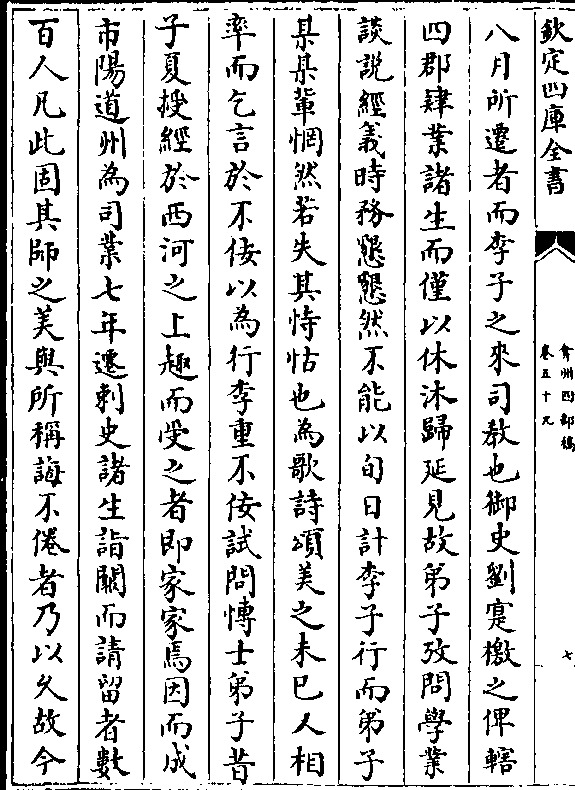 欽定四庫全書
弇州四部稿
卷五十九
七
八月所遷者而李子之來司教也御史劉寔檄之俾轄
四郡肄業諸生而僅以休沐歸延見故弟子攷問學業
談説經義時務懇懇然不能以旬日計李子行而弟子
某某輩惘然若失其恃怙也為歌詩頌美之未已人相
率而乞言於不佞以為行李重不佞試問博士弟子昔
子夏授經於西河之上趣而受之者即家家焉因而成
市陽道州為司業七年遷刺史諸生詣闕而請留者數
百人凡此固其師之美與所稱誨不倦者乃以久故今